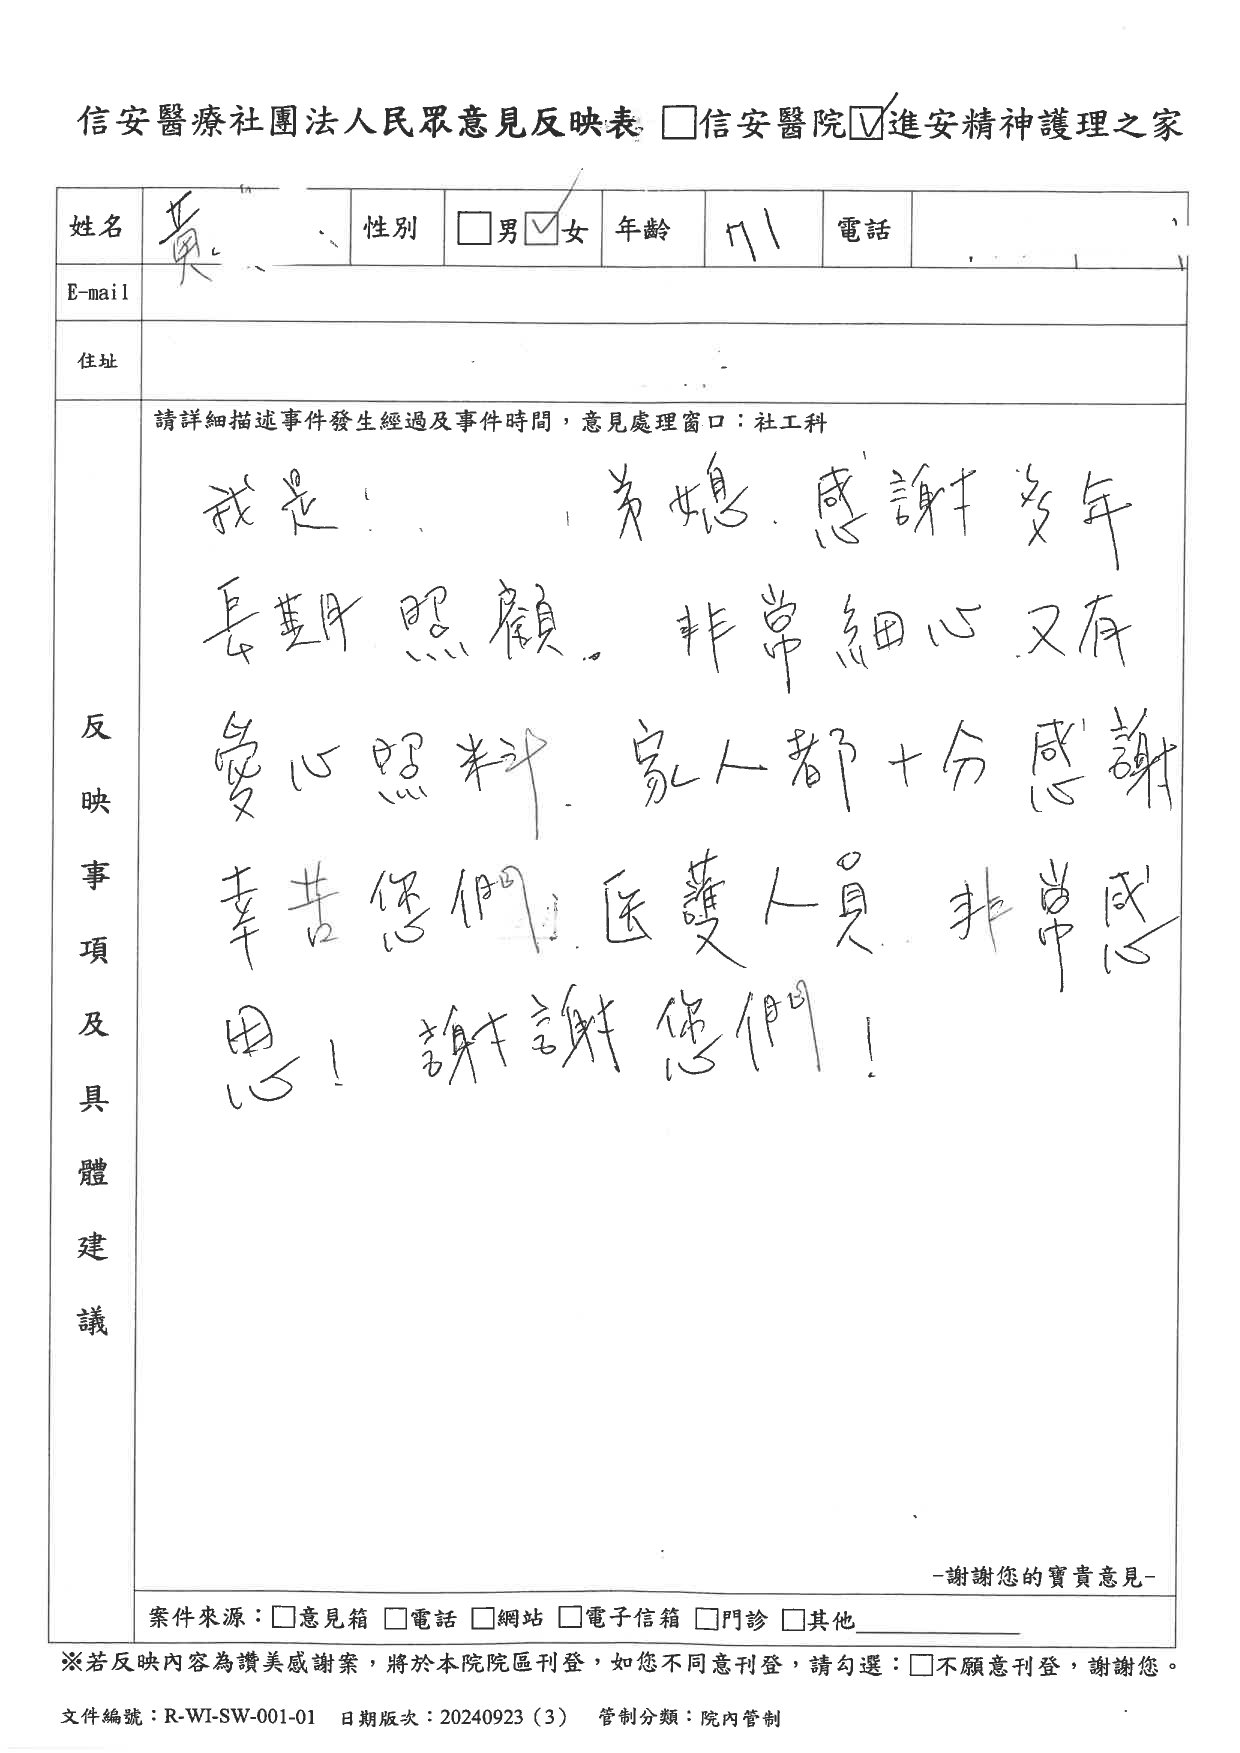 信安醫療社團法人民眾意見反映表 □信安醫院☑進安精神護理之家
姓名 黃 性別 □男☑女 年齡 71 電話
E-mail
住址
請詳細描述事件發生經過及事件時間，意見處理窗口：社工科
反映事項及具體建議
我是 弟媳.感謝多年
長期照顧。非常細心又有
愛心照料.家人都十分感謝
辛苦您們.医護人員.非常感
恩!謝謝您們!
-謝謝您的寶貴意見-
案件來源：□意見箱 □電話 □網站 □電子信箱 □門診 □其他
※若反映內容為讚美感謝案，將於本院院區刊登，如您不同意刊登，請勾選：□不願意刊登，謝謝您。
文件編號：R-WI-SW-001-01 日期版次：20240923（3） 管制分類：院內管制